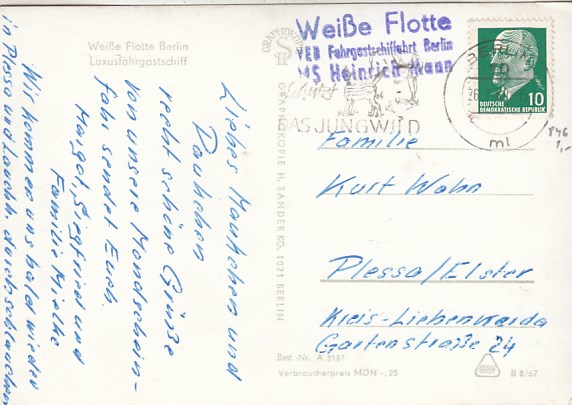 Weiße Flotte Berlin
Luxusfahrgastschiff
Weiße Flotte
VEB Fahrgastschiffahrt Berlin
MS Heinrich Mann
BERLIN
DEUTSCHE
DEMOKRATISCHE REPUBLIK
10
schützt
DAS JUNGWILD
ml
846
1,-
GRAPHOKOPIE H. SANDER KG, 1071 BERLIN
Liebes Mauhchen und
Pauhchen
recht schöne Grüße
von unsere Mondschein-
fahr sendet Euch
Margot, Siegfried und
Familie Mielke
Wir kommen uns bald wieder
in Plessa und Lauchh. durchschlauchen
Familie
Kurt Wahn
Plessa/Elster
Kreis-Liebenwerda
Gartenstraße 24
Best.-Nr. A 2187
Verbraucherpreis MDN -,25
B 8/67